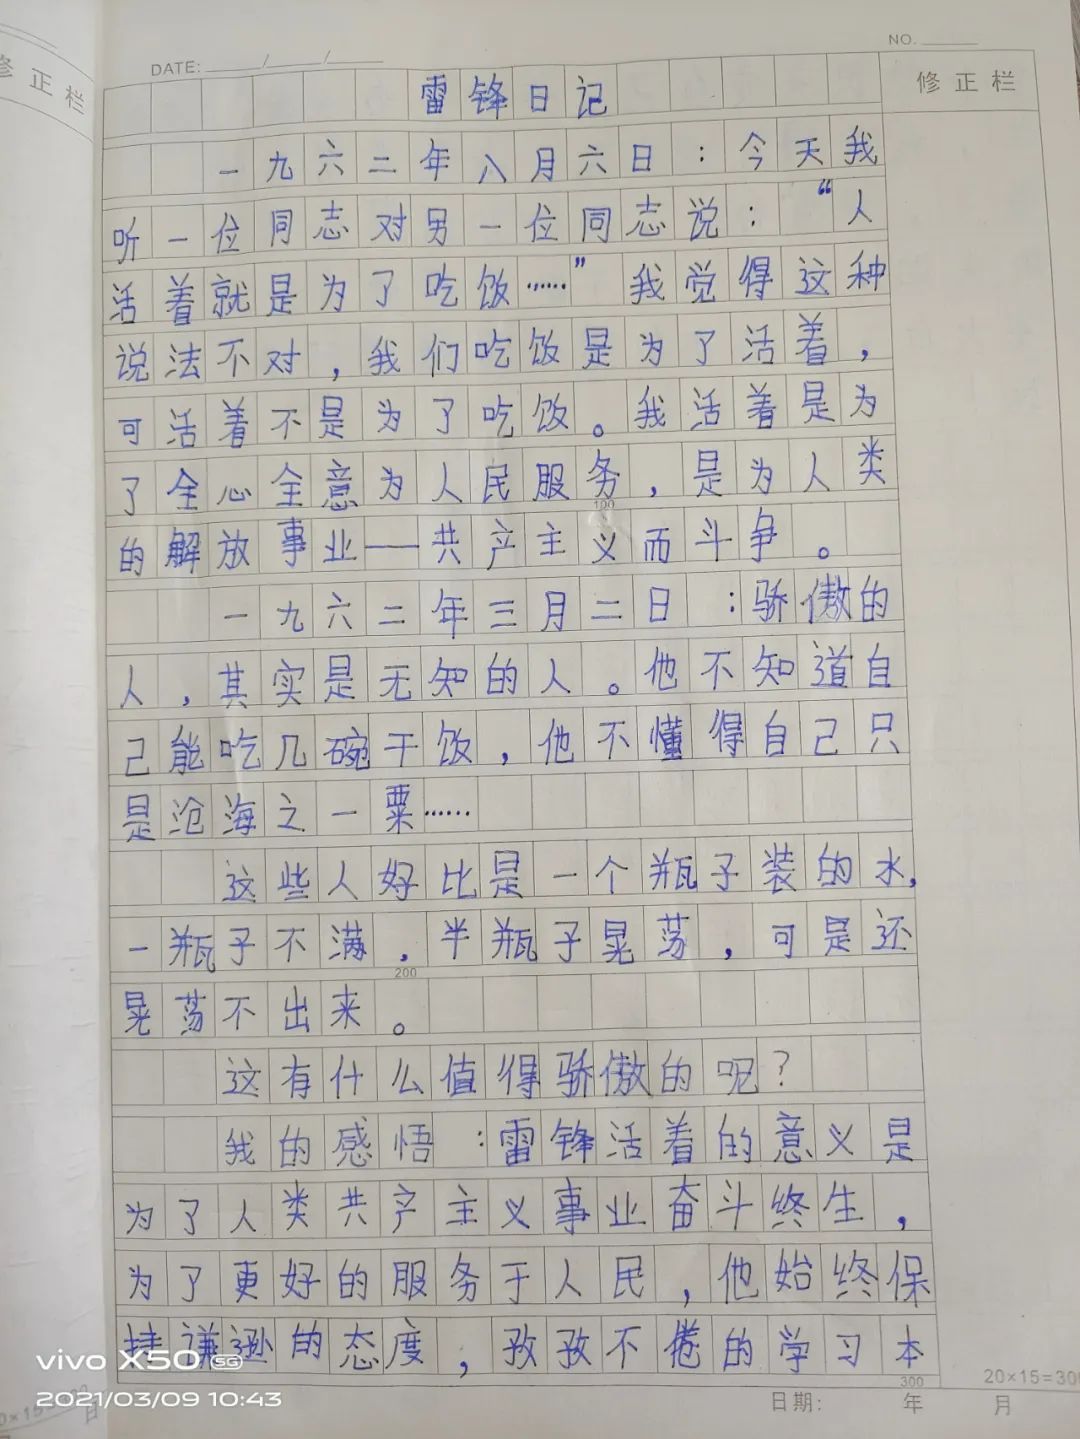 修正栏
DATE: / /
NO.
修正栏
雷锋日记
一九六二年八月六日：今天我
听一位同志对另一位同志说：“人
活着就是为了吃饭……”我觉得这种
说法不对，我们吃饭是为了活着，
可活着不是为了吃饭。我活着是为
了全心全意为人民服务，是为人类
100
的解放事业——共产主义而斗争。
一九六二年三月二日：骄傲的
人，其实是无知的人。他不知道自
己能吃几碗干饭，他不懂得自己只
是沧海之一粟……
这些人好比是一个瓶子装的水，
一瓶子不满，半瓶子晃荡，可是还
200
晃荡不出来。
这有什么值得骄傲的呢？
我的感悟：雷锋活着的意义是
为了人类共产主义事业奋斗终生，
为了更好的服务于人民，他始终保
持谦逊的态度，孜孜不倦的学习本
300
20×15=300
日期： 年 月
vivo X50 5G
2021/03/09 10:43